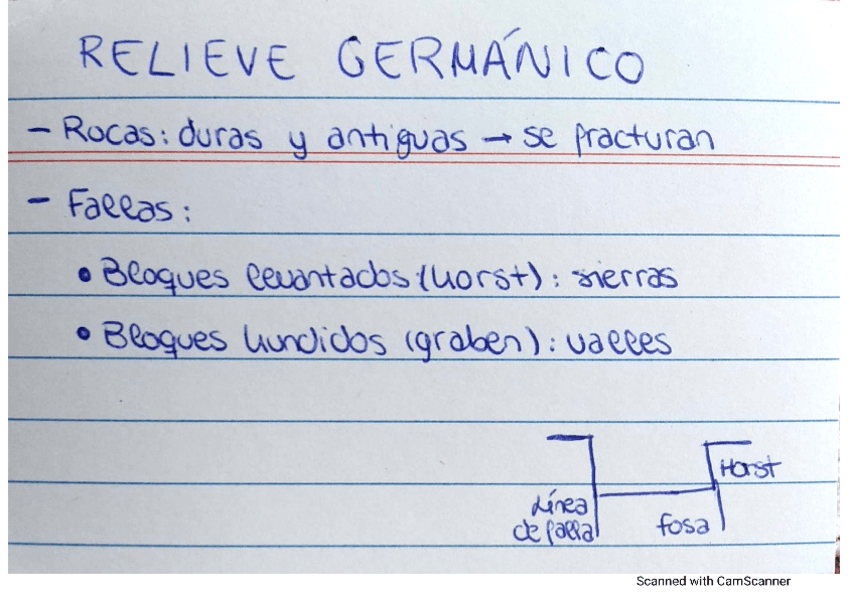 RELIEVE GERMÁNICO
- Rocas: duras y antiguas → se fracturan
- Fallas:
• Bloques levantados (horst): sierras
• Bloques hundidos (graben): valles
Horst
Línea
de falla
fosa
Scanned with CamScanner